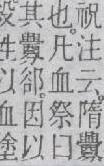 祝注云。隋釁
也。凡血祭曰
其釁郤。因以
殺牲以血塗